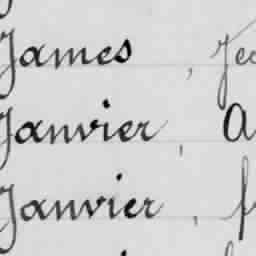 James, Je
Janvier, A
Janvier, f